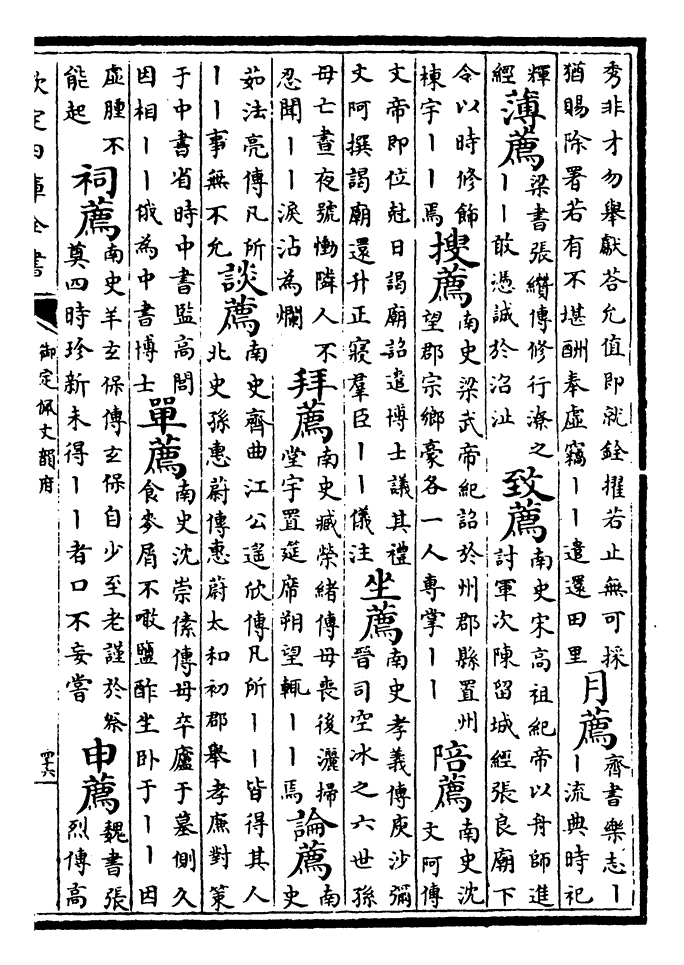 秀非才勿舉獻荅允值即就銓擢若止無可採
猶賜除署若有不堪酬奉虛竊丨丨遣還田里
月薦
齊書樂志丨
丨流典時祀
輝
經
薄薦
梁書張纘傳修行潦之
丨丨敢憑誠於沼沚
致薦
南史宋高祖紀帝以舟師進
討軍次陳留城經張良廟下
令以時修飾
棟宇丨丨焉
搜薦
南史梁武帝紀詔於州郡縣置州
望郡宗鄉豪各一人專掌丨丨
陪薦
南史沈
文阿傳
文帝即位尅日謁廟詔遣博士議其禮
文阿撰謁廟還升正寢羣臣丨丨儀注
坐薦
南史孝義傳庾沙彌
晉司空冰之六世孫
母亡晝夜號慟隣人不
忍聞丨丨淚沾為爛
拜薦
南史臧榮緒傳母喪後灑掃
堂宇置筵席朔望輒丨丨焉
論薦
南
史
茹法亮傳凡所
丨丨事無不允
談薦
南史齊曲江公遙欣傳凡所丨丨皆得其人
北史孫惠蔚傳惠蔚太和初郡舉孝廉對策
于中書省時中書監高閭
因相丨丨俄為中書博士
單薦
南史沈崇傃傳母卒廬于墓側久
食麥屑不噉鹽酢坐卧于丨丨因
虛腫不
能起
祠薦
南史羊玄保傳玄保自少至老謹於祭
奠四時珍新未得丨丨者口不妄嘗
申薦
魏書張
烈傳高
欽定四庫全書
御定佩文韻府
四十六